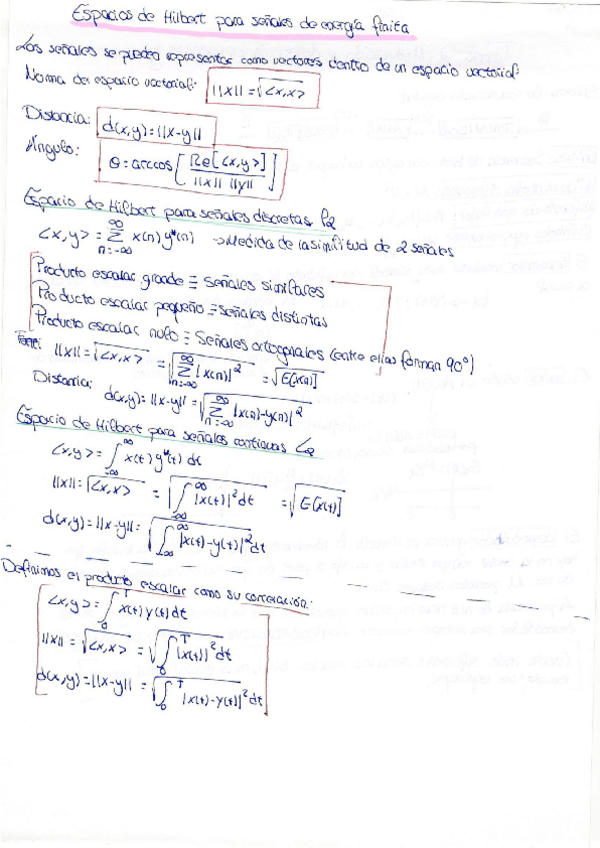 Espacios de Hilbert para señales de energía finita
Las señales se pueden representar como vectores dentro de un espacio vectorial:
Norma del espacio vectorial: ||x|| = √<x,x>
Distancia: d(x,y) = ||x-y||
Ángulo: θ = arccos [ Re[<x,y>] / ||x|| ||y|| ]
Espacio de Hilbert para señales discretas l2
<x,y> = ∑_{n=-∞}^{∞} x(n) y*(n) → Medida de la similitud de 2 señales
Producto escalar grande ≡ Señales similares
Producto escalar pequeño ≡ señales distintas
Producto escalar nulo ≡ Señales ortogonales (entre ellas forman 90°)
||x|| = √<x,x> = √(∑_{n=-∞}^{∞} |x(n)|²) = √E[x(n)]
Distancia: d(x,y) = ||x-y|| = √(∑_{n=-∞}^{∞} |x(n)-y(n)|²)
Espacio de Hilbert para señales continuas L2
<x,y> = ∫_{-∞}^{∞} x(t) y*(t) dt
||x|| = √<x,x> = √(∫_{-∞}^{∞} |x(t)|² dt) = √E[x(t)]
d(x,y) = ||x-y|| = √(∫_{-∞}^{∞} |x(t)-y(t)|² dt)
Definimos el producto escalar como su correlación:
<x,y> = ∫_0^T x(t) y(t) dt
||x|| = √<x,x> = √(∫_0^T |x(t)|² dt)
d(x,y) = ||x-y|| = √(∫_0^T |x(t)-y(t)|² dt)